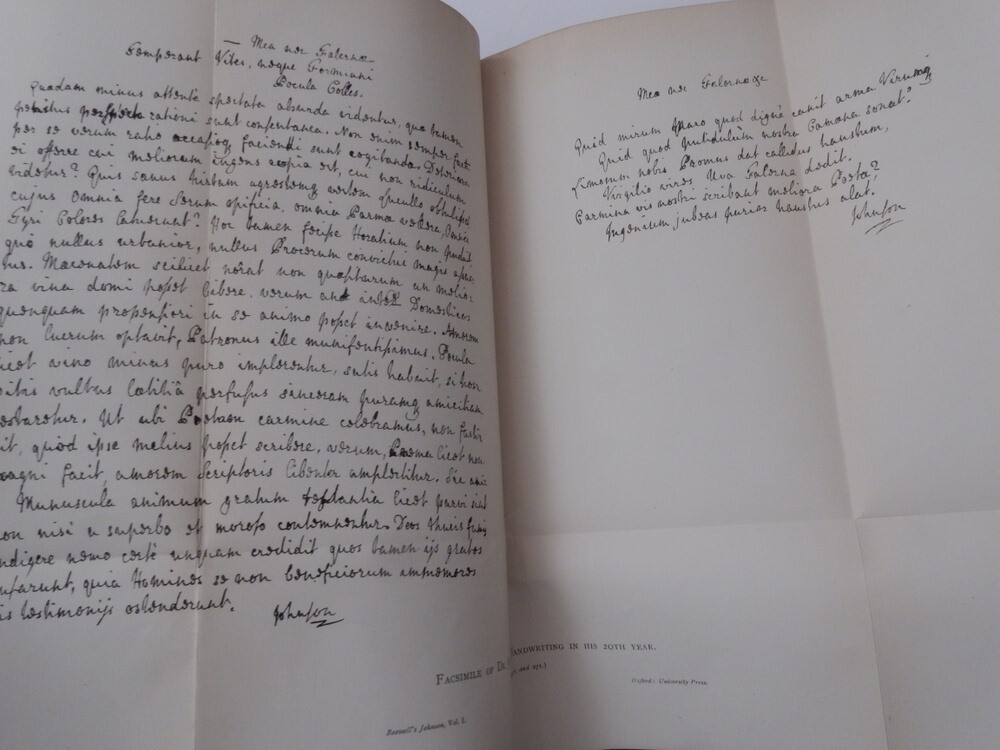 — Mea nec Falernæ
Temperant Vites, neque Formiani
Pocula Colles.
Quædam minus attente spectata absurda videntur, quæ tamen
penitus perspecta rationi sunt consentanea. Non enim semper facta
per se verum ratio occasioq faciendi sunt cogitanda. Deteriora
ei offerre cui meliorum ingens copia est, cui non ridiculum
videtur? Quis sanus hirtam agrestemq vestem Lucullo obtulisset
cujus omnia fere Serum opificia, omnia Parmæ vellera, omnes
Tyri Colores latuerunt? Hoc tamen fecisse Horatium non puduit
quo nullus urbanior, nullus Procerum convictui magis
tus. Mæcenatem scilicet nôrat non quæsiturum an meliora
ra vina domi posset bibere, verum an inter Domesticos
quenquam propensiori in se animo posset invenire. Amorem
non lucrum optavit, Patronus ille munificentissimus. Pocula
licet vino minus puro implerentur, satis habuit, si hos
pitis vultus lætitiâ perfusus sinceram puramq amicitiam
testaretur. Ut ubi Poetam carmine celebramus, non fastid
it, quod ipse melius posset scribere, verum, Poema licet non
magni facit, amorem Scriptoris libenter amplectitur. Sic amici
Munuscula animum gratum testantia licet parvi sint
non nisi a superbo et moroso contemnentur. Deos thuris fumis
indigere nemo certè unquam credidit quos tamen ijs gratos
putarunt, quia Homines se non beneficiorum immemores
his testimonijs ostenderunt.
Johnson
Mea nec Falernæ &c
Quid mirum Maro quod digne canit arma Virumq
Quid quod putidulùm nostra Camœna sonat?
Limosum nobis Promus dat callidus haustum,
Virgilio vires Uva Falerna dedit.
Carmina vis nostri scribant meliora Poetæ?
Ingenium jubeas purior haustus alat.
Johnson
FACSIMILE OF DR. HANDWRITING IN HIS 20TH YEAR.
and 272.)
Boswell's Johnson, Vol. I.
Oxford: University Press.